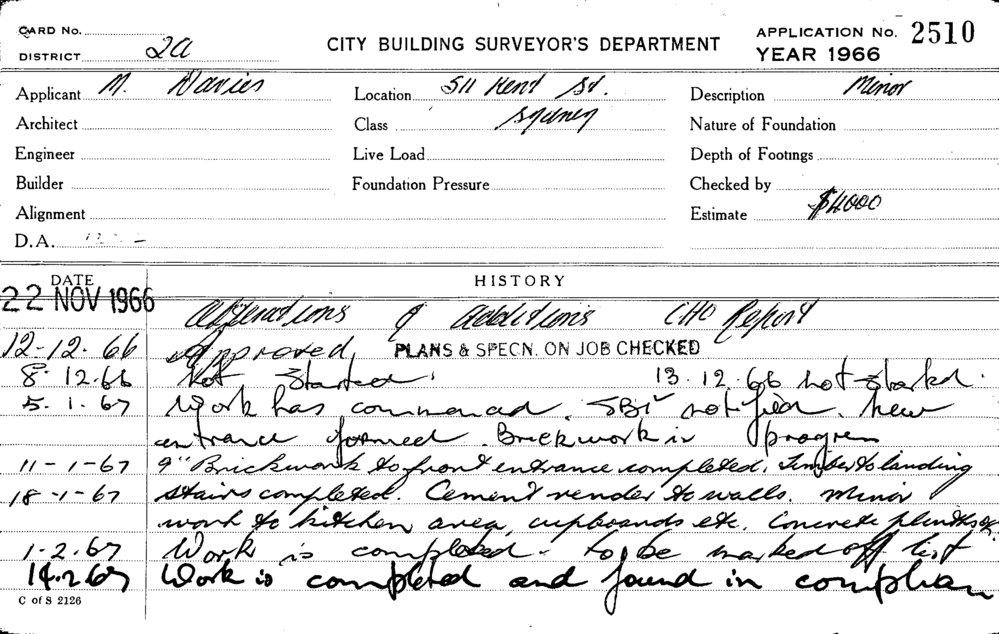 CARD No.
DISTRICT 2A
CITY BUILDING SURVEYOR'S DEPARTMENT
APPLICATION No. 2510
YEAR 1966
Applicant M. Davies
Location 511 Kent St.
Description Minor
Architect
Class Sydney
Nature of Foundation
Engineer
Live Load
Depth of Footings
Builder
Foundation Pressure
Checked by
Alignment
Estimate $4000
D.A.
DATE
HISTORY
22 NOV 1966 Alterations & additions CHO Report
12-12.66 Approved, PLANS & SPECN. ON JOB CHECKED
8.12.66 Not Started. 13.12.66 not started.
5.1.67 Work has commenced. SBI notified. New
entrance formed. Brickwork in progress
11-1-67 9" Brickwork to front entrance completed. Timber to landing
18-1-67 stairs completed. Cement render to walls. Minor
work to kitchen area, cupboards etc. Concrete plinths
1.2.67 Work is completed - to be marked off list
14.2.67 Work is completed and found in complian
C of S 2126